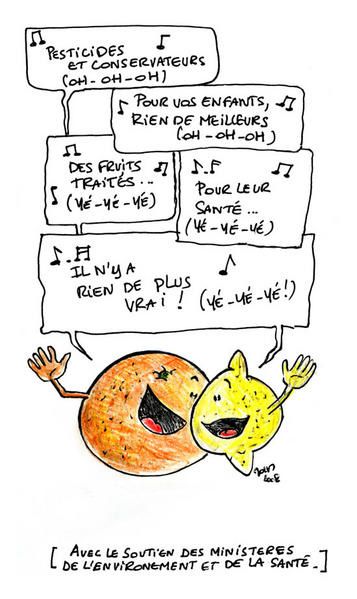 PESTICIDES
ET CONSERVATEURS
(OH-OH-OH)
POUR VOS ENFANTS,
RIEN DE MEILLEURS
(OH-OH-OH)
DES FRUITS
TRAITÉS...
(YÉ-YÉ-YÉ)
POUR LEUR
SANTÉ...
(YÉ-YÉ-YÉ)
IL N'Y A
RIEN DE PLUS
VRAI ! (YÉ-YÉ-YÉ!)
[ AVEC LE SOUTIEN DES MINISTERES
DE L'ENVIRONEMENT ET DE LA SANTÉ. ]